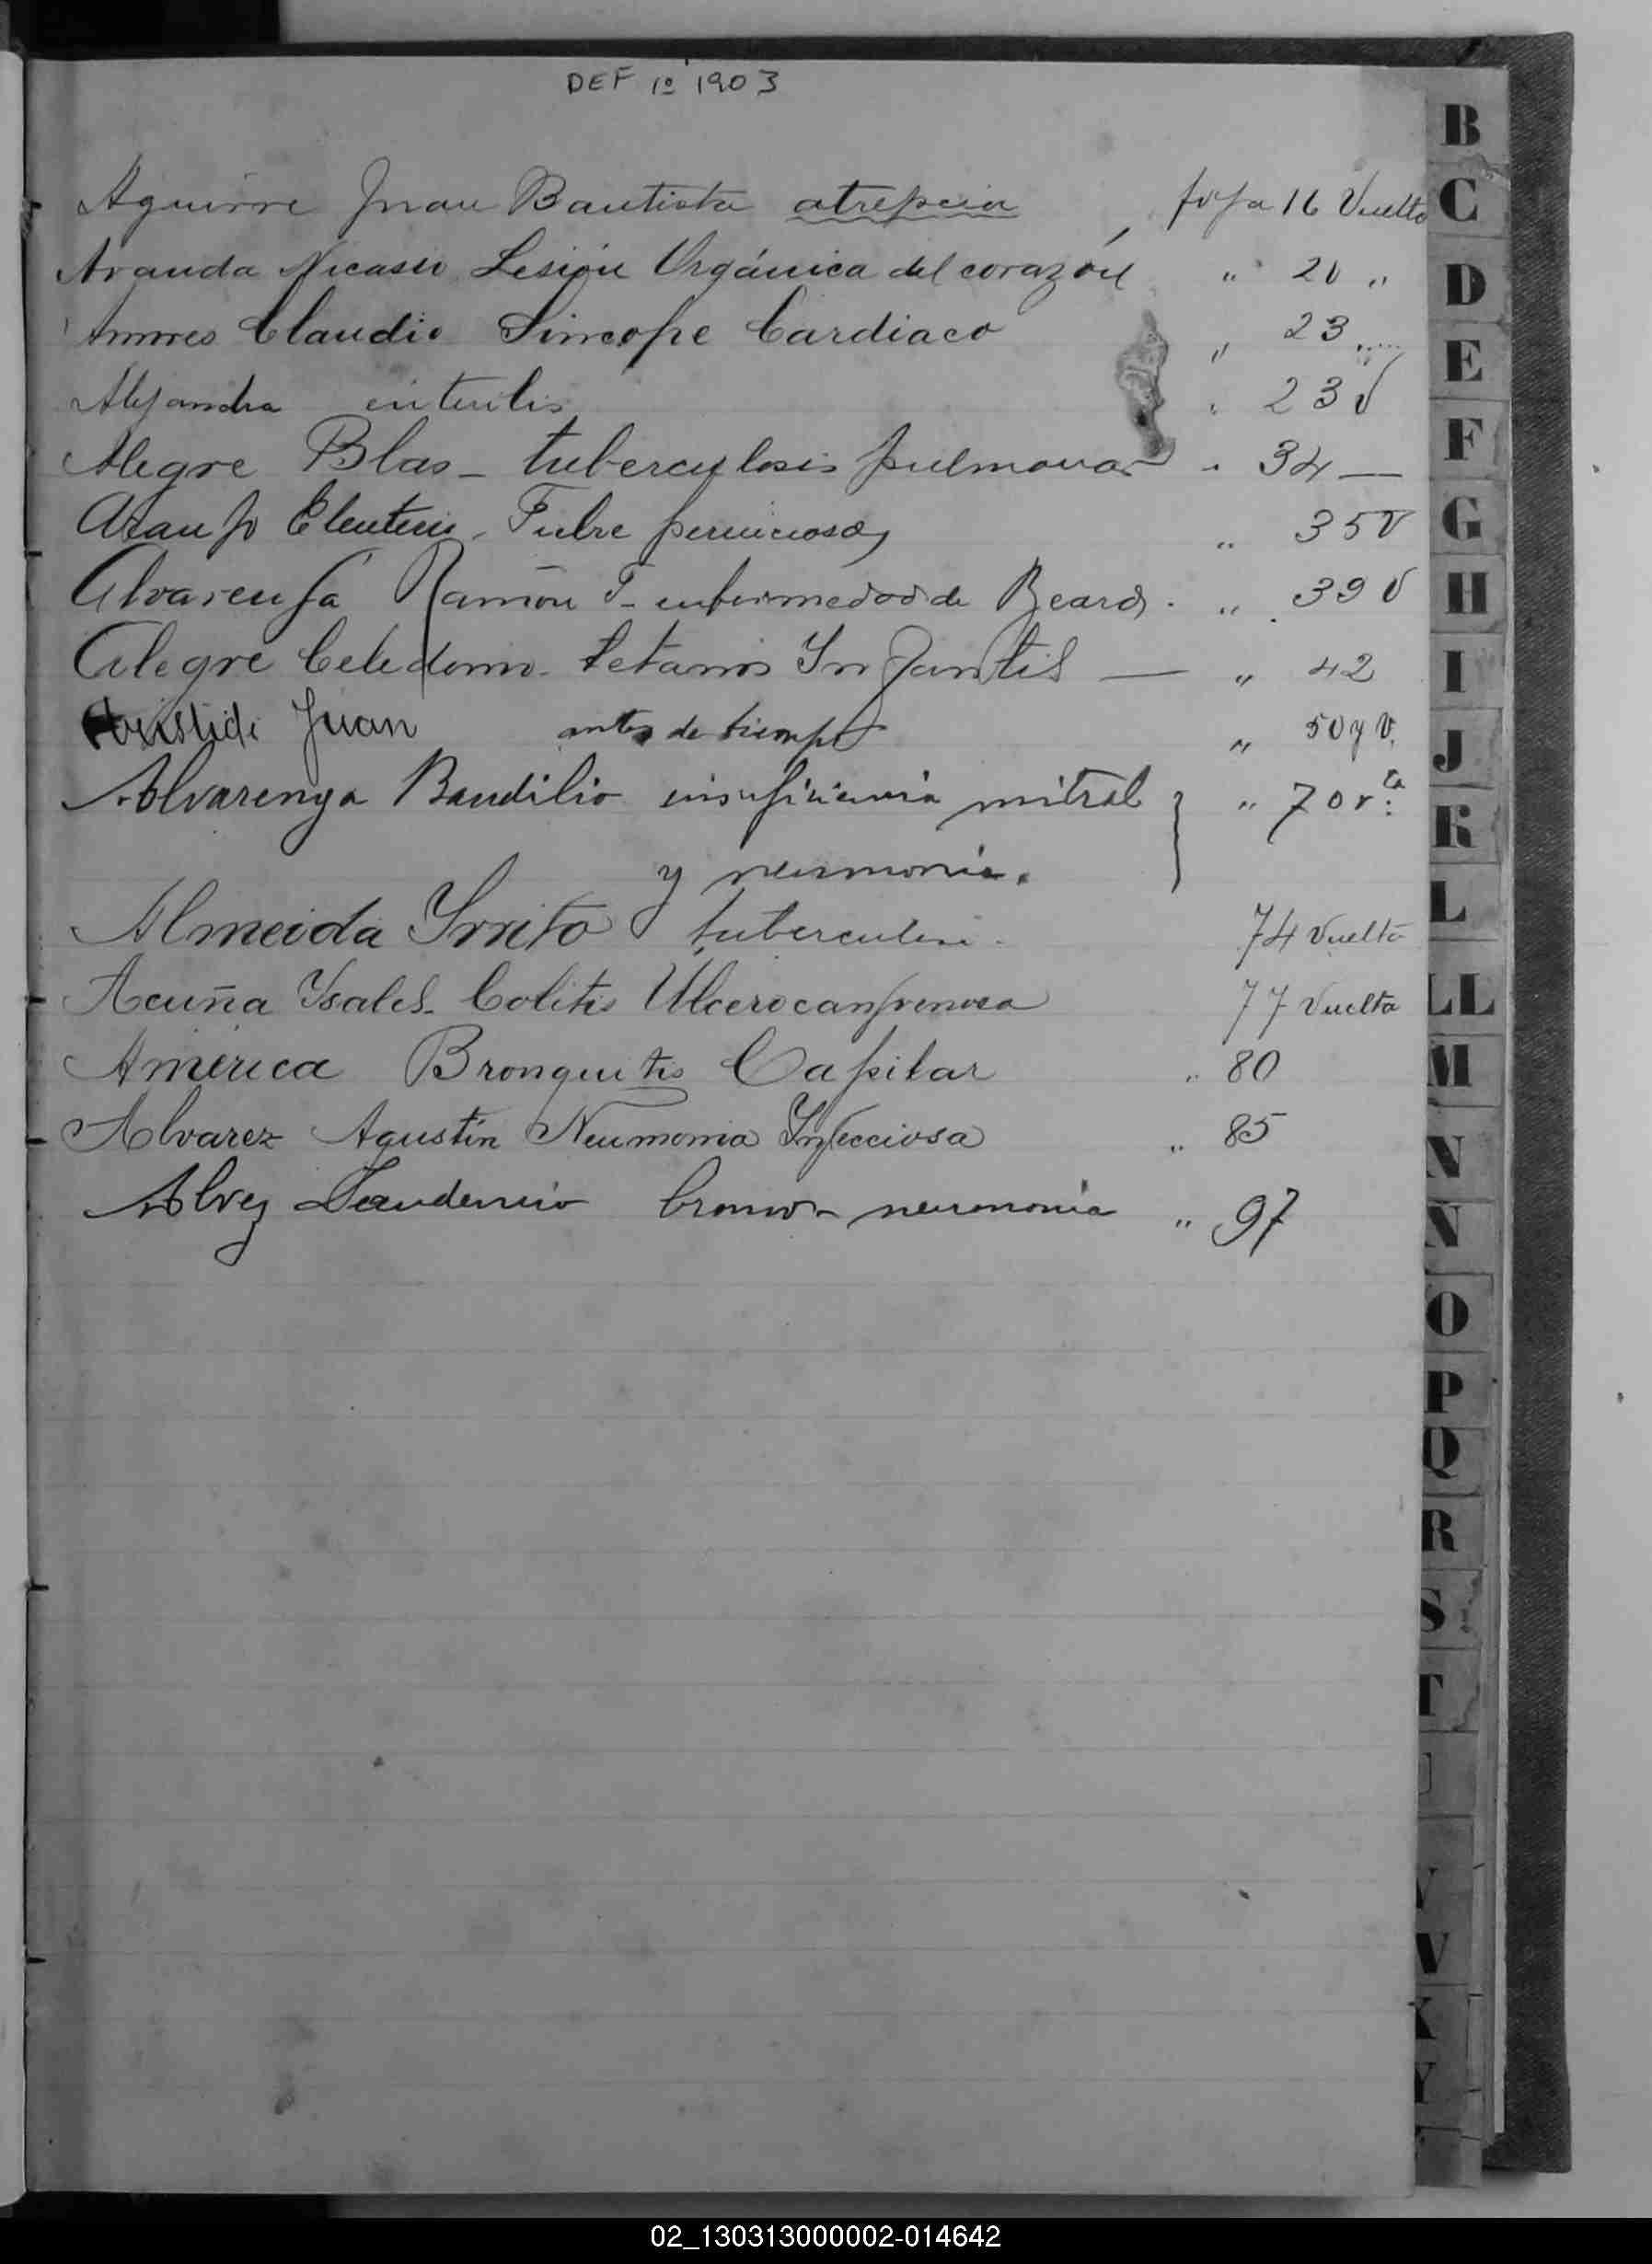 DEF 1º 1903
Aguirre Juan Bautista atrepcia foja 16 Vuelto
Aranda Nicasio Lesión Orgánica del corazón " 20 "
Claudio Sincope Cardiaco " 23 "
Alejandra enteritis " 23 V
Alegre Blas - tuberculosis pulmonar " 34 —
Araujo Eleuterio - Fiebre perniciosa " 35 V
Alvarenga Ramón F - enfermedad de Beard. " 39 V
Alegre Celedonio - tetanos Infantil — " 42
Juan antes de tiempo " 50 y V.
Alvarenga Baudilio insuficiencia mitral } " 70 v.ta
y neumonia.
Almeida tuberculosis 74 Vuelto
Acuña Ysabel - Colitis Ulcerocangrenosa 77 Vuelta
América Bronquitis Capilar " 80
Alvarez Agustín Neumonia Infecciosa " 85
Alvez bronco-neumonia " 97
B
C
D
E
F
G
H
I
J
K
L
LL
M
N
N
O
P
Q
R
S
T
U
V
X
Y
02_130313000002-014642